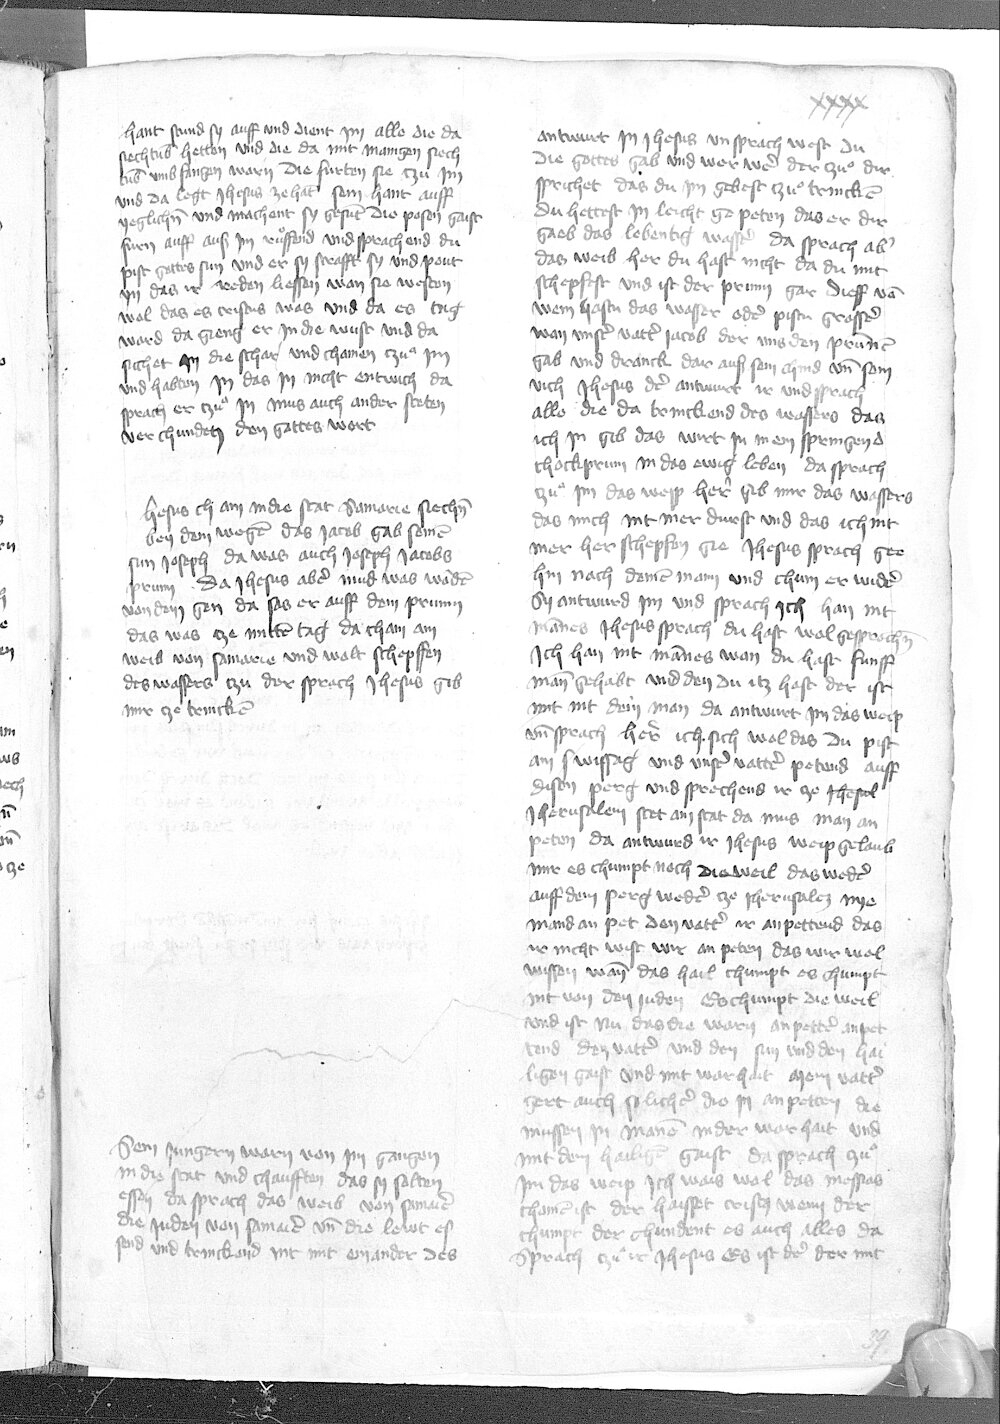 xxxx
hant stund sy auff vnd dient im alle die da
siechtūb hetten vnd die da mit manigen siech
tūb vmb fangen warn Die furten sie czu im
vnd da legt Jhesus ze hat sein hant auff
yeglichn̄ vnd machent sy gesūt die posen gaist
furn auff auß im růffend vnd sprachend du
pist gottes sun vnd er sy strafft sy vnd pout
yn das ir reden liessen wan sie westen
wol das es cristus was vnd da es tag
ward da gieng er in die wust vnd da
sichet in die schar vnd chamen czuͦ im
vnd habten in das in nicht entwich da
sprach er czuͦ in mus auch ander steten
verchunden den gottes wort
Jhesus ch am in die stat Samarie siechn̄
bey dem wegē das jacob gab seinē
sun Joseph da was auch Joseph Jacobs
prunn Da Jhesus aber mud was wādē
von dem gen da sas er auff dem prunn
das was cze mittē tag da cham am
weib von samarie vnd wolt schepffen
des wassers czu der sprach Jhesus gib
mir cze trinckē
Sein jungern warn von im gangen
in die stat vnd chaufften das sy solten
essen da sprach das weib von samarē
die juden von samarē vn̄ die lewt es
send vnd trinckend nit mit einander des
antwurt in Jhesus vn sprach west du
die gottes gab vnd wer wer der czuͦ dir
sprichet das du im gebest czuͦ trinckē
du hettest in leicht ge peten das er dir
gaeb das lebentig wasser da sprach ab
das weib her du hast nicht da du mit
schepfest vnd ist der prunn gar dieff vō
wem hastu das wasser oder pistu grosser
wan vnser vatter jacob der vns den prūnē
gab vnd dranck dar auß sein chind vn̄ sein
vich Jhesus der antwurt ir vnd sprach
alle die da trinckend des wassers das
ich in gib das wirt in in ein springend
chockprunn in das ewig leben da sprach
czuͦ im das weip her gib mir das wassers
das mich nit mer durst vnd das ich nit
mer her schepfen gie Jhesus sprach gee
hin nach deinē mann vnd chum er wider
Sy antwurd im vnd sprach ich han nit
mānes Jhesus sprach du hast wol gesprochn̄
Ich han nit mānes wan du hast funff
man gehabt vnd den du itz hast der ist
mit nit dein man da antwurt im das weip
vn̄ sprach her ich sich wol das du pist
am wissag vnd vnser vatter petend auff
disem perg vnd sprechend ir cze Jhesul
Jherusalem stet am stat da mus man an
peten da antwurd ir Jhesus weip gelaub
mir es chumpt noch die weil das weder
auff dem perg weder cze Jherusalem nye
mand an pet den vatter ir an pettend das
ir nicht wist wir an peten das wir wol
wissen wan̄ das hail chumpt es chumpt
nit von den juden Es chumpt die weil
vnd ist nu das die warn anpetter anpet
tend den vatter vnd den sun vnd den hai
ligen gaist vnd mit warhait mein vatter
gert auch sulicher die in anpetten die
mussen in manē in der warhait vnd
mit dem hailigē gaist da sprach czuͦ
im das weip Ich wais wol das messias
chomē ist der haisset crist wenn der
chumpt der chundent es auch alles da
Sprach czuͦ ir Jhesus Es ist der der mit
39